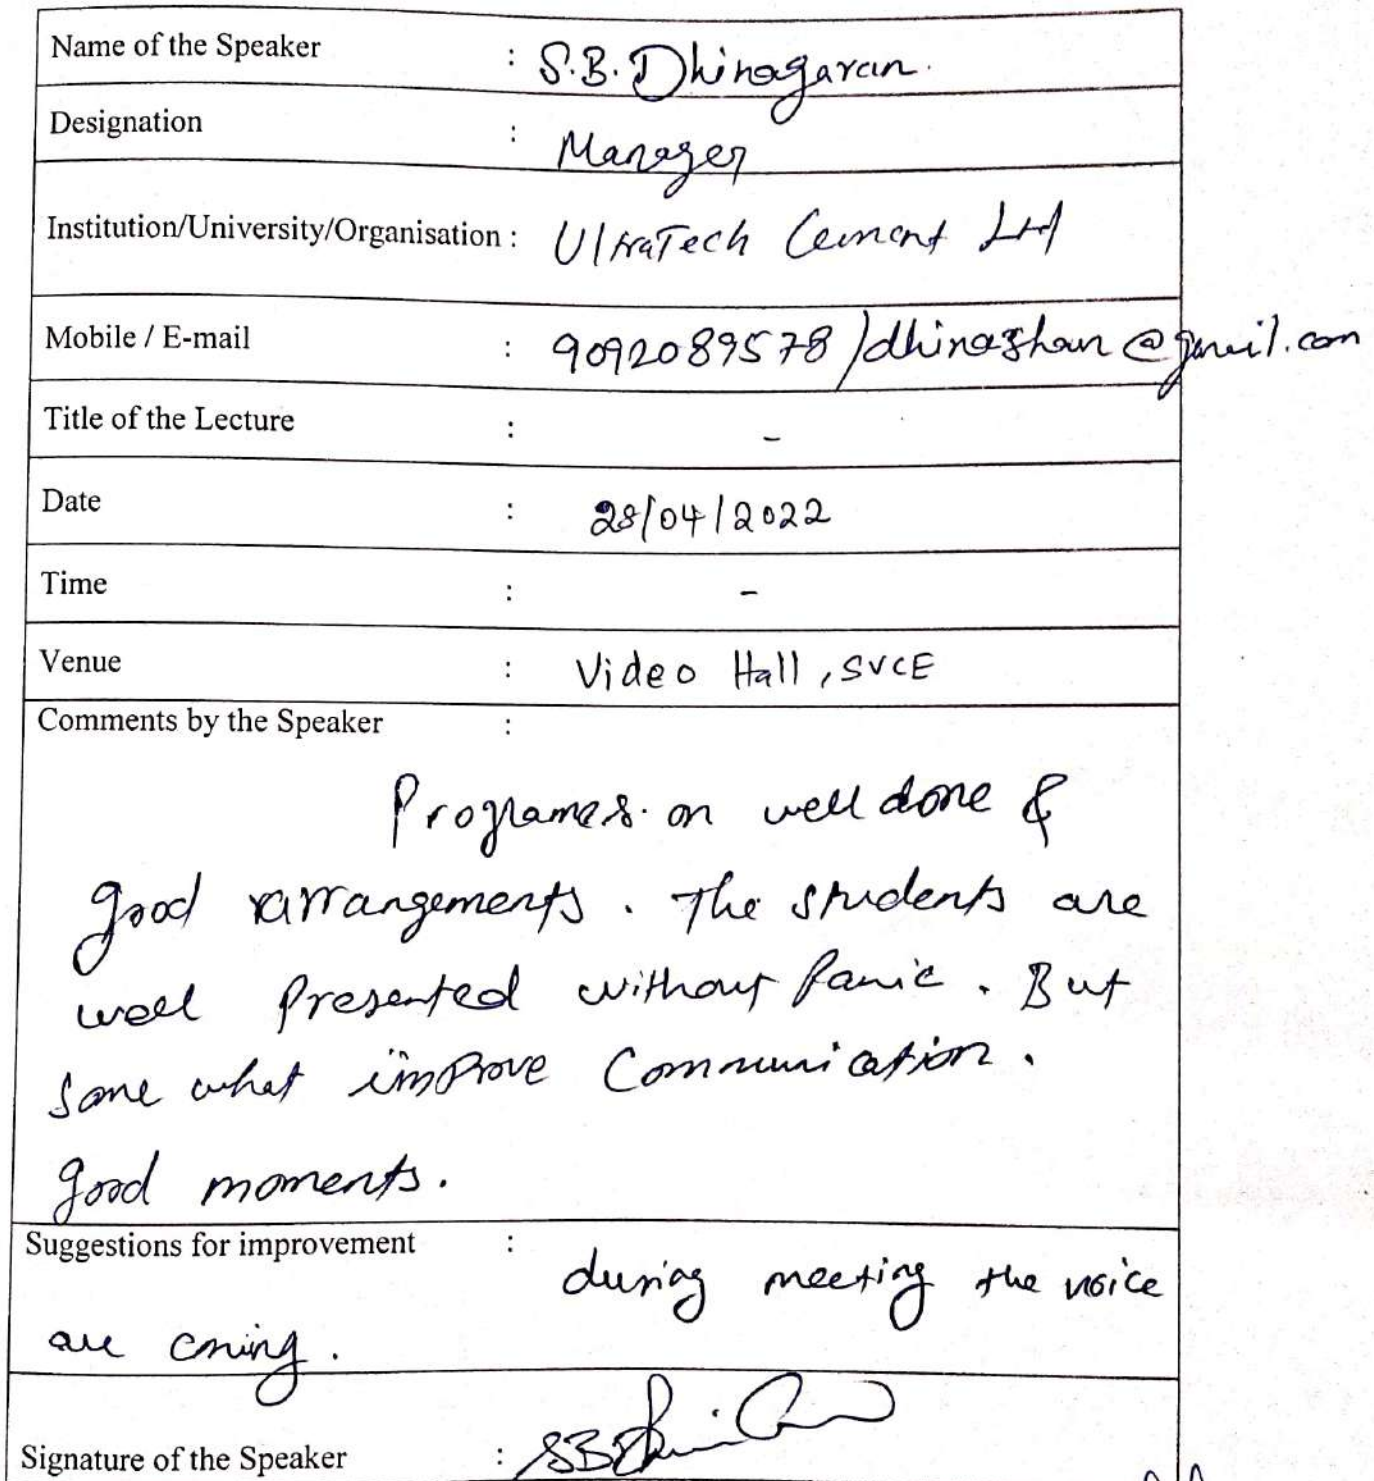 Name of the Speaker : S.B. Dhinagaran.
Designation : Manager
Institution/University/Organisation : UltraTech Cement Ltd
Mobile / E-mail : 9092089578 / @gmail.com
Title of the Lecture : -
Date : 28/04/2022
Time : -
Venue : Video Hall, SVCE
Comments by the Speaker :
Programes. on well done &
good arrangements. The students are
well presented without Panic. But
some what improve Communication.
good moments.
Suggestions for improvement : during meeting the voice
are coming.
Signature of the Speaker :